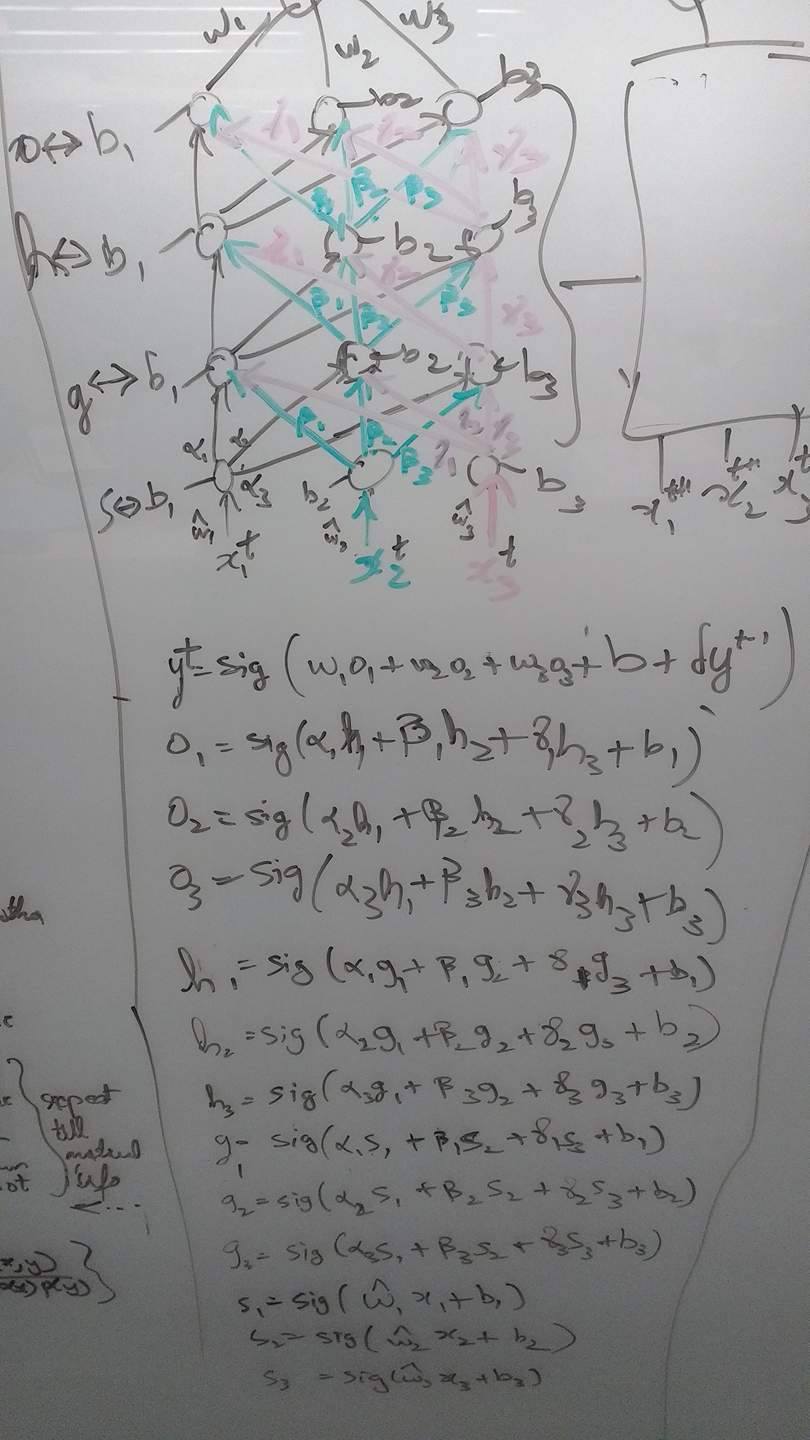 w₁ w₂ w₃
o↔b₁ b₂ b₃
γ₁ γ₂ γ₃
β₁ β₂ β₃
h↔b₁ b₂ b₃
γ₁ γ₂ γ₃
β₁ β₂ β₃
g↔b₁ b₂ b₃
β₁ β₂ β₃ γ₁ γ₂ γ₃
α₁ α₂ α₃
s↔b₁ b₂ b₃
ŵ₁ ŵ₂ ŵ₃
x₁ᵗ x₂ᵗ x₃ᵗ
x₁ᵗ⁺¹ x₂ᵗ⁺¹ x₃ᵗ
yᵗ = sig(w₁o₁ + w₂o₂ + w₃o₃ + b + δyᵗ⁻¹)
o₁ = sig(α₁h₁ + β₁h₂ + γ₁h₃ + b₁)
o₂ = sig(α₂h₁ + β₂h₂ + γ₂h₃ + b₂)
o₃ = sig(α₃h₁ + β₃h₂ + γ₃h₃ + b₃)
h₁ = sig(α₁g₁ + β₁g₂ + γ₁g₃ + b₁)
h₂ = sig(α₂g₁ + β₂g₂ + γ₂g₃ + b₂)
h₃ = sig(α₃g₁ + β₃g₂ + γ₃g₃ + b₃)
g₁ = sig(α₁s₁ + β₁s₂ + γ₁s₃ + b₁)
g₂ = sig(α₂s₁ + β₂s₂ + γ₂s₃ + b₂)
g₃ = sig(α₃s₁ + β₃s₂ + γ₃s₃ + b₃)
s₁ = sig(ŵ₁x₁ + b₁)
s₂ = sig(ŵ₂x₂ + b₂)
s₃ = sig(ŵ₃x₃ + b₃)
repeat
till
mutual
info